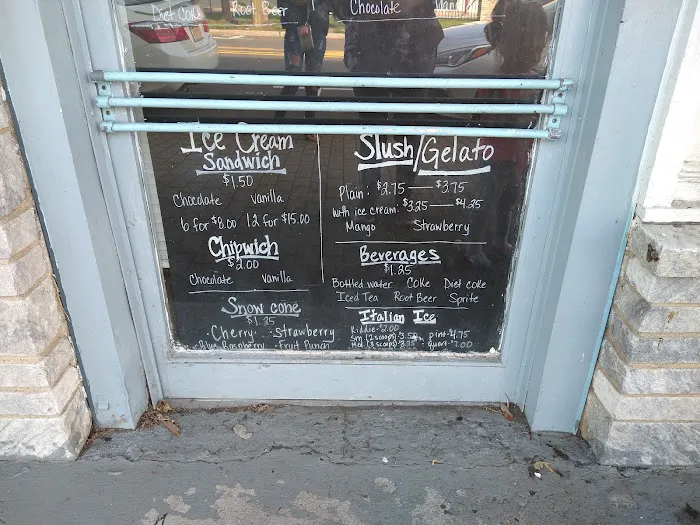 Diet Coke Root Beer Chocolate Vanilla
Ice Cream
Sandwich
$1.50
Chocolate Vanilla
6 for $8.00 12 for $15.00
Chipwich
$2.00
Chocolate Vanilla
Snow cone
$1.25
· Cherry · Strawberry
· Blue Raspberry · Fruit Punch
Slush/Gelato
Plain: $2.75 — $3.75
with ice cream: $3.25 — $4.25
Mango Strawberry
Beverages
$1.25
Bottled water Coke Diet coke
Iced Tea Root Beer Sprite
Italian Ice
Kiddie-$2.00
Sm (2 scoops) pint-$4.75
Md (3 scoops) quart-$7.00